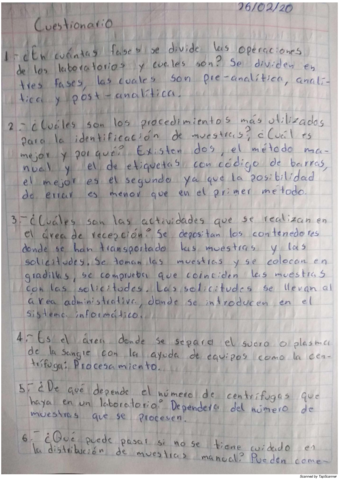 26/02/20
Cuestionario
1.- ¿En cuántas fases se divide las operaciones
de los laboratorios y cuales son? Se dividen en
tres fases, las cuales son pre-analítica, analí-
tica y post-analítica.
2.- ¿Cuáles son los procedimientos más utilizados
para la identificación de muestras? ¿Cuál es
mejor y por qué? Existen dos, el método ma-
nual y el de etiquetas con código de barras,
el mejor es el segundo ya que la posibilidad
de errar es menor que en el primer método.
3.- ¿Cuáles son las actividades que se realizan en
el área de recepción? Se depositan los contenedores
donde se han transportado las muestras y las
solicitudes. Se toman las muestras y se colocan en
gradillas, se comprueba que coinciden las muestras
con las solicitudes. Las solicitudes se llevan al
área administrativa, donde se introducen en el
sistema informático.
4.- Es el área donde se separa el suero o plasma
de la sangre con la ayuda de equipos como la cen-
trífuga: Procesamiento.
5.- ¿De qué depende el número de centrífugas que
haya en un laboratorio? Dependerá del número de
muestras que se procesen.
6.- ¿Qué puede pasar si no se tiene cuidado en
la distribución de muestras manual? Pueden come-
Scanned by TapScanner